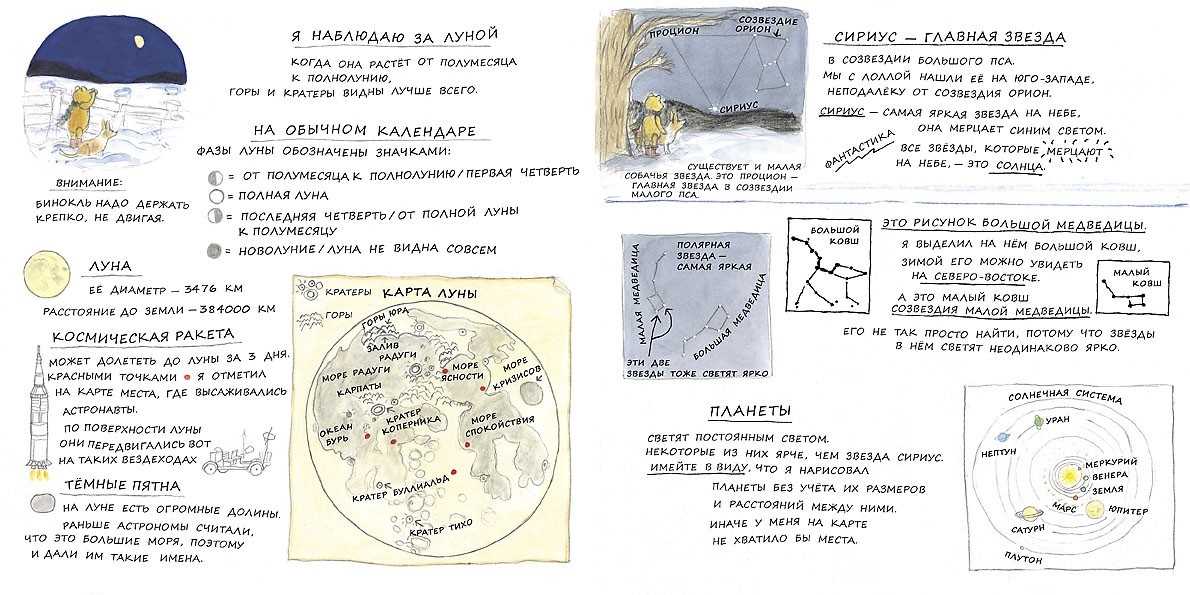 Я НАБЛЮДАЮ ЗА ЛУНОЙ
КОГДА ОНА РАСТЁТ ОТ ПОЛУМЕСЯЦА
К ПОЛНОЛУНИЮ,
ГОРЫ И КРАТЕРЫ ВИДНЫ ЛУЧШЕ ВСЕГО.
НА ОБЫЧНОМ КАЛЕНДАРЕ
ФАЗЫ ЛУНЫ ОБОЗНАЧЕНЫ ЗНАЧКАМИ:
= ОТ ПОЛУМЕСЯЦА К ПОЛНОЛУНИЮ/ПЕРВАЯ ЧЕТВЕРТЬ
= ПОЛНАЯ ЛУНА
= ПОСЛЕДНЯЯ ЧЕТВЕРТЬ/ОТ ПОЛНОЙ ЛУНЫ
К ПОЛУМЕСЯЦУ
= НОВОЛУНИЕ/ЛУНА НЕ ВИДНА СОВСЕМ
ВНИМАНИЕ:
БИНОКЛЬ НАДО ДЕРЖАТЬ
КРЕПКО, НЕ ДВИГАЯ.
ЛУНА
ЕЁ ДИАМЕТР – 3476 КМ
РАССТОЯНИЕ ДО ЗЕМЛИ – 384000 КМ
КОСМИЧЕСКАЯ РАКЕТА
МОЖЕТ ДОЛЕТЕТЬ ДО ЛУНЫ ЗА 3 ДНЯ.
КРАСНЫМИ ТОЧКАМИ Я ОТМЕТИЛ
НА КАРТЕ МЕСТА, ГДЕ ВЫСАЖИВАЛИСЬ
АСТРОНАВТЫ.
ПО ПОВЕРХНОСТИ ЛУНЫ
ОНИ ПЕРЕДВИГАЛИСЬ ВОТ
НА ТАКИХ ВЕЗДЕХОДАХ
ТЁМНЫЕ ПЯТНА
НА ЛУНЕ ЕСТЬ ОГРОМНЫЕ ДОЛИНЫ.
РАНЬШЕ АСТРОНОМЫ СЧИТАЛИ,
ЧТО ЭТО БОЛЬШИЕ МОРЯ, ПОЭТОМУ
И ДАЛИ ИМ ТАКИЕ ИМЕНА.
КРАТЕРЫ
КАРТА ЛУНЫ
ГОРЫ
ГОРЫ ЮРА
ЗАЛИВ
РАДУГИ
МОРЕ РАДУГИ
МОРЕ
ЯСНОСТИ
МОРЕ
КРИЗИСОВ
КАРПАТЫ
КРАТЕР
КОПЕРНИКА
ОКЕАН
БУРЬ
МОРЕ
СПОКОЙСТВИЯ
КРАТЕР БУЛЛИАЛЬД
КРАТЕР ТИХО
ПРОЦИОН
СОЗВЕЗДИЕ
ОРИОН
СИРИУС
СУЩЕСТВУЕТ И МАЛАЯ
СОБАЧЬЯ ЗВЕЗДА. ЭТО ПРОЦИОН –
ГЛАВНАЯ ЗВЕЗДА В СОЗВЕЗДИИ
МАЛОГО ПСА.
СИРИУС – ГЛАВНАЯ ЗВЕЗДА
В СОЗВЕЗДИИ БОЛЬШОГО ПСА.
МЫ С ЛОЛЛОЙ НАШЛИ ЕЁ НА ЮГО-ЗАПАДЕ,
НЕПОДАЛЁКУ ОТ СОЗВЕЗДИЯ ОРИОН.
СИРИУС – САМАЯ ЯРКАЯ ЗВЕЗДА НА НЕБЕ,
ОНА МЕРЦАЕТ СИНИМ СВЕТОМ.
ФАНТАСТИКА
ВСЕ ЗВЁЗДЫ, КОТОРЫЕ МЕРЦАЮТ
НА НЕБЕ, – ЭТО СОЛНЦА.
МАЛАЯ МЕДВЕДИЦА
ПОЛЯРНАЯ
ЗВЕЗДА –
САМАЯ ЯРКАЯ
БОЛЬШАЯ МЕДВЕДИЦА
ЭТИ ДВЕ
ЗВЕЗДЫ ТОЖЕ СВЕТЯТ ЯРКО
БОЛЬШОЙ
КОВШ
ЭТО РИСУНОК БОЛЬШОЙ МЕДВЕДИЦЫ.
Я ВЫДЕЛИЛ НА НЁМ БОЛЬШОЙ КОВШ,
ЗИМОЙ ЕГО МОЖНО УВИДЕТЬ
НА СЕВЕРО-ВОСТОКЕ.
А ЭТО МАЛЫЙ КОВШ
СОЗВЕЗДИЯ МАЛОЙ МЕДВЕДИЦЫ.
МАЛЫЙ
КОВШ
ЕГО НЕ ТАК ПРОСТО НАЙТИ, ПОТОМУ ЧТО ЗВЁЗДЫ
В НЁМ СВЕТЯТ НЕОДИНАКОВО ЯРКО.
ПЛАНЕТЫ
СВЕТЯТ ПОСТОЯННЫМ СВЕТОМ.
НЕКОТОРЫЕ ИЗ НИХ ЯРЧЕ, ЧЕМ ЗВЕЗДА СИРИУС.
ИМЕЙТЕ В ВИДУ, ЧТО Я НАРИСОВАЛ
ПЛАНЕТЫ БЕЗ УЧЁТА ИХ РАЗМЕРОВ
И РАССТОЯНИЙ МЕЖДУ НИМИ.
ИНАЧЕ У МЕНЯ НА КАРТЕ
НЕ ХВАТИЛО БЫ МЕСТА.
СОЛНЕЧНАЯ СИСТЕМА
УРАН
НЕПТУН
МЕРКУРИЙ
ВЕНЕРА
ЗЕМЛЯ
МАРС
ЮПИТЕР
САТУРН
ПЛУТОН